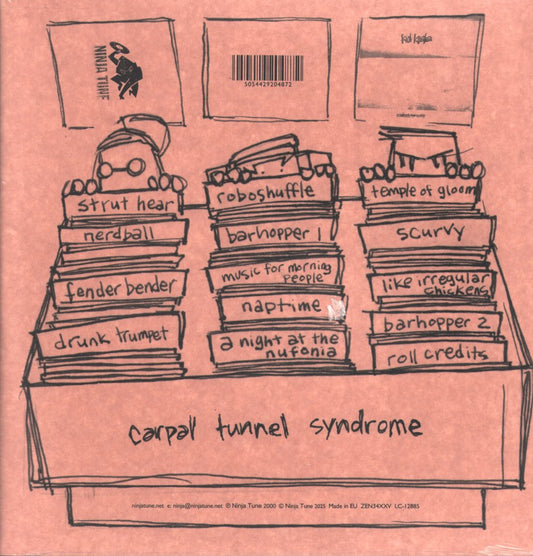 NINJA TUNE
5054429204872
kid koala
strut hear
nerdball
fender bender
drunk trumpet
roboshuffle
barhopper 1
music for morning
people
naptime
a night at the
nufonia
temple of gloom
scurvy
like irregular
chickens
barhopper 2
roll credits
carpal tunnel syndrome
ninjatune.net e: ninja@ninjatune.net ℗ Ninja Tune 2000 © Ninja Tune 2025 Made in EU ZEN34XXV LC-12885